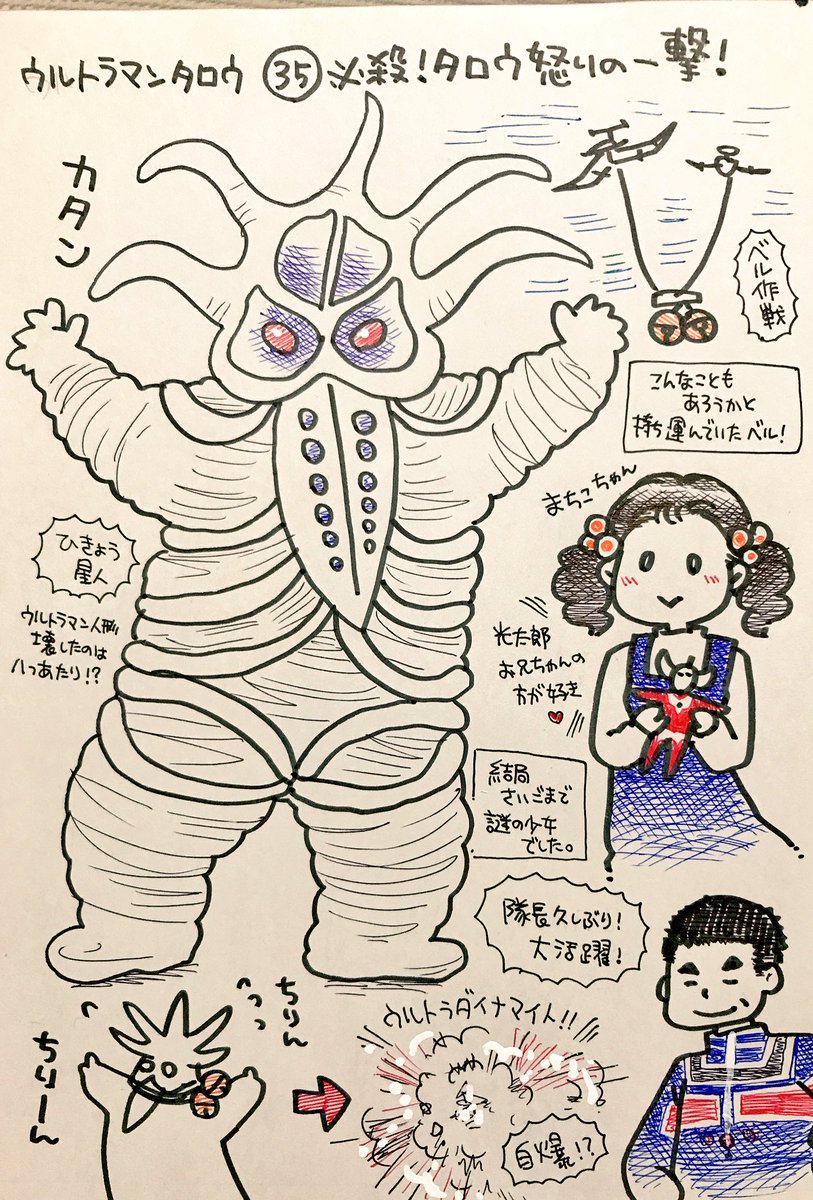 ウルトラマンタロウ ㉟ 必殺!タロウ怒りの一撃!
カタン
ベル作戦
こんなことも
あろうかと
持ち運んでいたベル!
まちこちゃん
ひきょう
星人
ウルトラマン人形
壊したのは
八つあたり!?
光太郎
お兄ちゃんの
方が好き
結局
さいごまで
謎の少女
でした。
隊長久しぶり!
大活躍!
ちりん
っっ
ちりーん
ウルトラダイナマイト!!
自爆!?